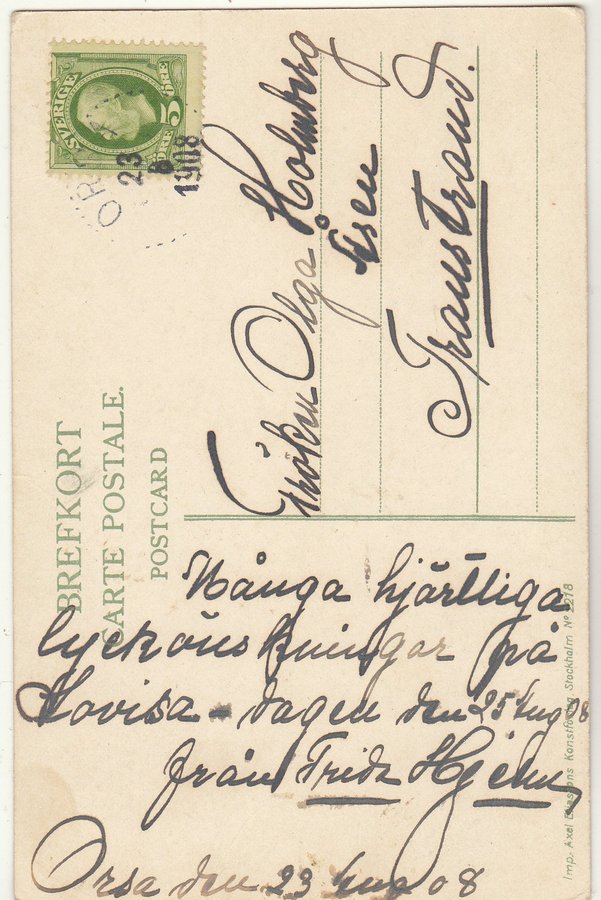 SVERIGE
5
ÖRE
ÖRE
23
8
1908
BREFKORT
CARTE POSTALE.
POSTCARD
Fröken Olga Holmberg
Åsen
Transtrand.
Många hjärtliga
lyckönskningar på
Lovisa-dagen den 25 Aug 08
från Frida
Orsa den 23 Aug 08
Imp. Axel Eliassons Konstförlag, Stockholm Nº 2218